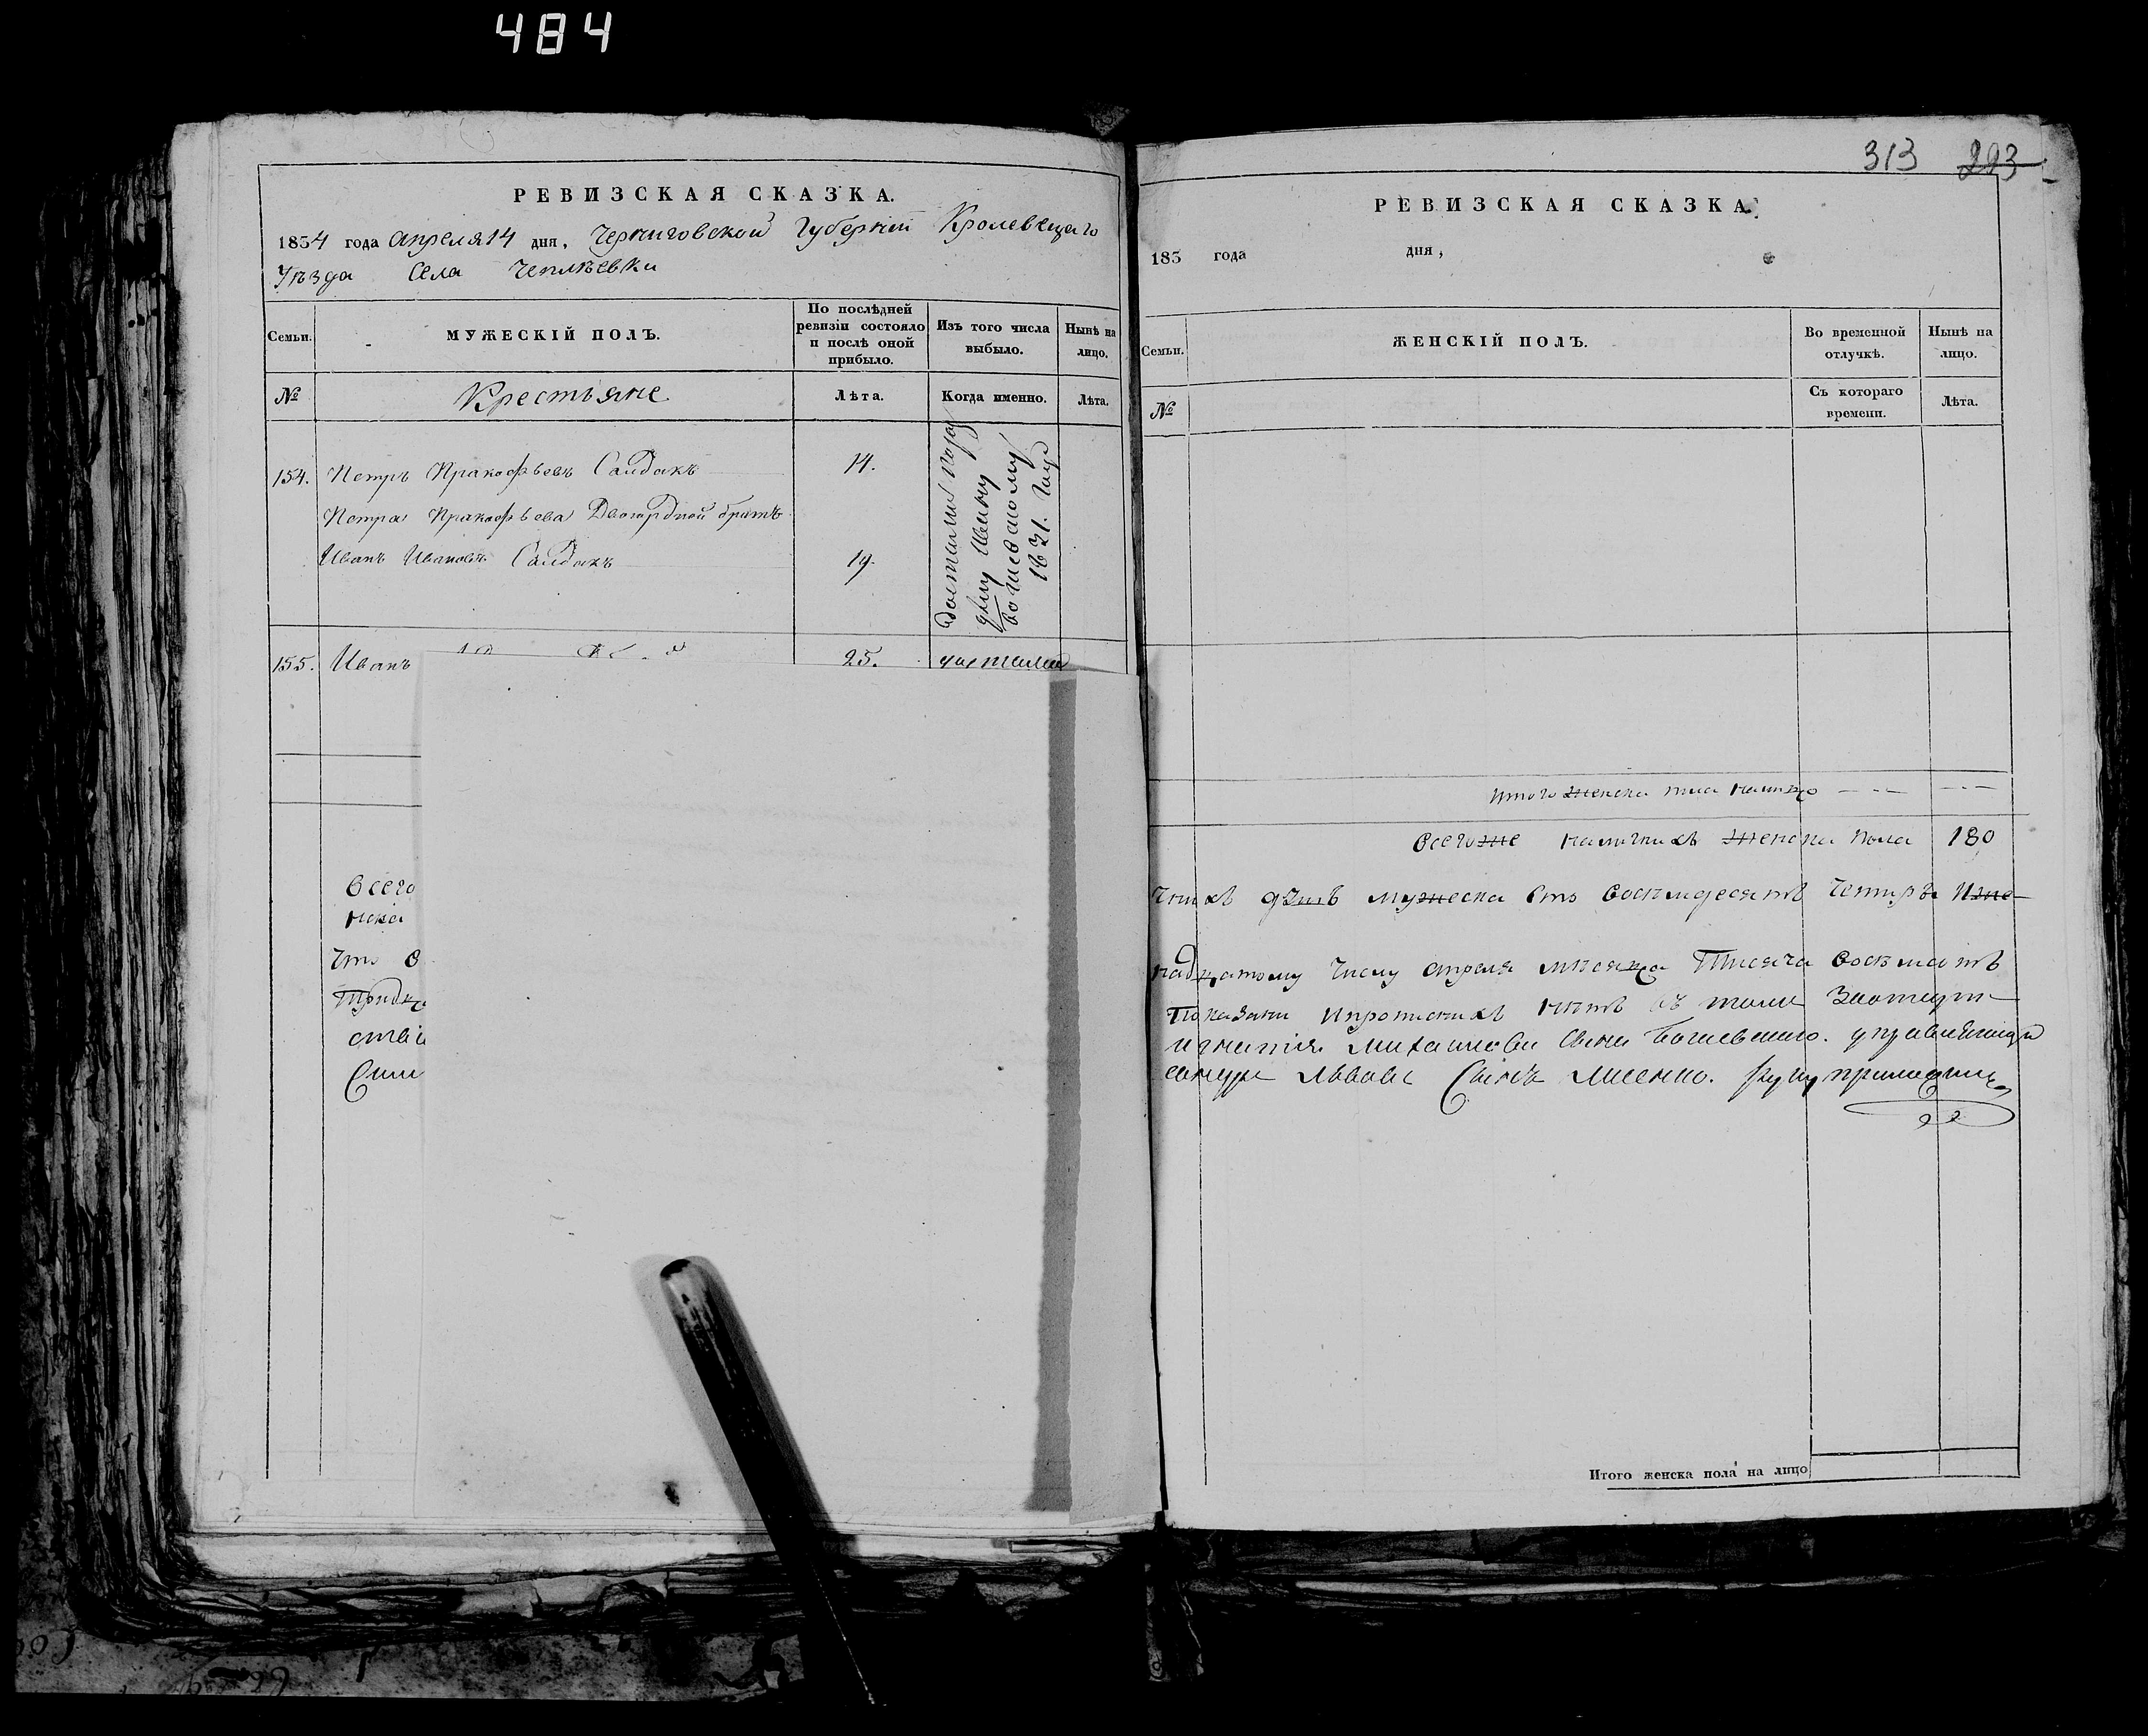 484
РЕВИЗСКАЯ СКАЗКА.
1834 года апреля 14 дня, Черниговской Губернии Кролевецкаго
Уѣзда Села Чепліевки
Семьи.
МУЖЕСКІЙ ПОЛЪ.
По послѣдней
ревизіи состояло
и послѣ оной
прибыло.
Изъ того числа
выбыло.
Нынѣ на
лицо.
№
Крестьяне
Лѣта.
Когда именно.
Лѣта.
154. Петръ Пракофьевъ Салдакъ 14.
Петра Пракофьева Двоюрдной братъ
Иванъ Ивановъ Салдакъ 19.
1831. Году
155. Иванъ 25.
Всего
нска
Что
Сим
313 293
РЕВИЗСКАЯ СКАЗКА.
183 года дня,
Семьи.
ЖЕНСКІЙ ПОЛЪ.
Во временной
отлучкѣ.
Нынѣ на
лицо.
№
Съ котораго
времени.
Лѣта.
Итого женска пола налицо
Всегоже наличнихъ женска пола 180
чнихъ душъ мужеска сто восѣмдесятъ четыре Иже-
надцатому числу апреля мѣсяца Тисяча восѣмсотъ
показани ипрописнихъ нѣтъ въ томъ
Михаилова сина управляющи
Львовъ Синъ Лисенко. руку приложилъ
Итого женска пола на лицо